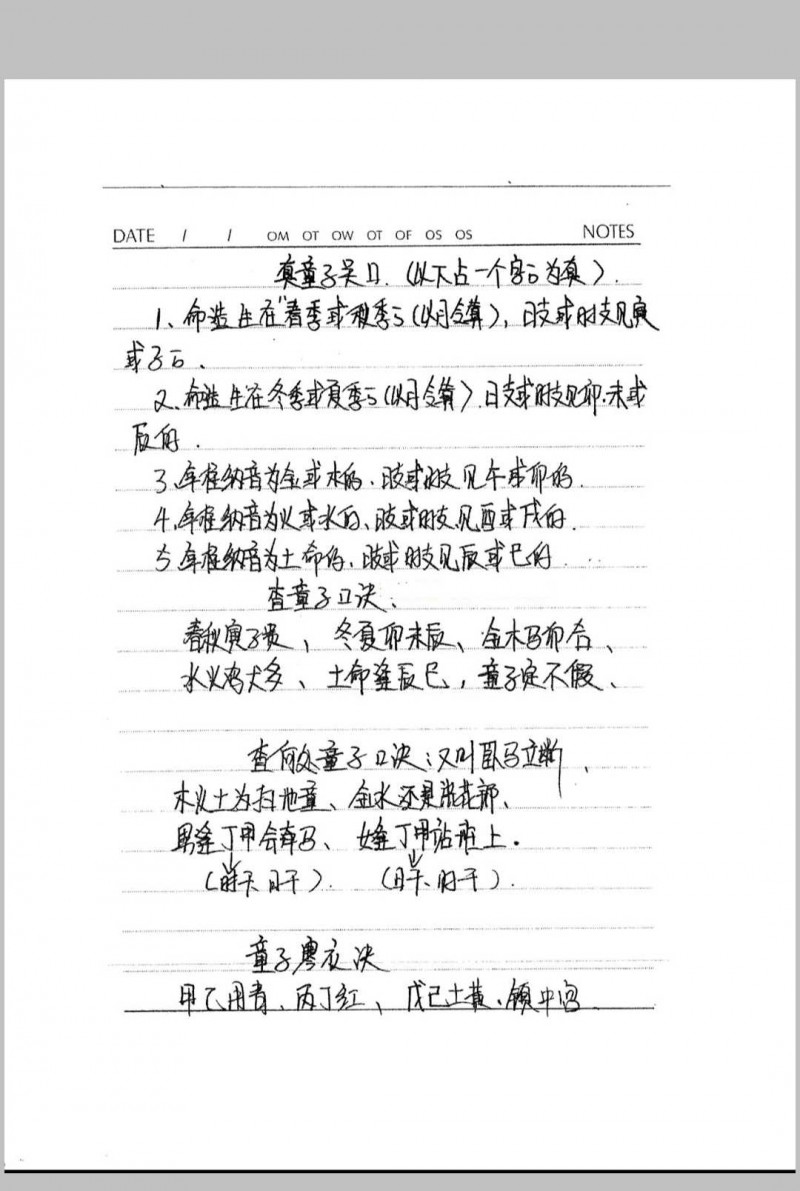 DATE / / OM OT OW OT OF OS OS NOTES
真童子 (以下占一个字为真).
1、命造生在"春季或秋季的(以月令算), 日支或时支见寅
或子的.
2、命造生在冬季或夏季的(以月令算). 日支或时支见卯.未或
辰的.
3、年柱纳音为金或木的、日支或时支见午或卯的.
4、年柱纳音为火或水的、日支或时支见酉或戌的.
5、年柱纳音为土命的、日支或时支见辰或巳的.
查童子口决:
春秋寅子贵、冬夏卯未辰、金木马卯合、
水火鸡犬多、土命逢辰巳,童子定不假、
查何处童子口决:又叫卧马立断、
木火土为扫地童、金水还是郎、
男逢丁甲会牵马、女逢丁甲站班上.
(时干 日干). (日干、时干).
童子决
甲乙用青、丙丁红、戊己土黄、镇中宫